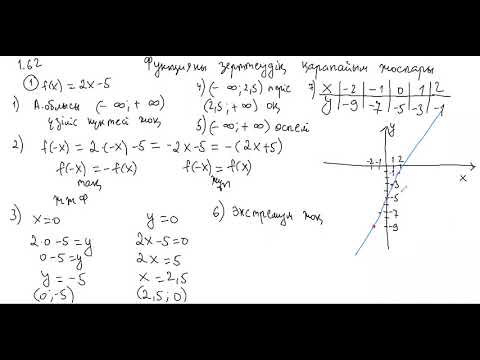 1.62 Функцияны зерттеудің қарапайым жоспары
① f(x) = 2x-5
1) А.облысы (-∞; +∞)
үзіліс нүктесі жоқ
2) f(-x) = 2·(-x)-5 = -2x-5 = -(2x+5)
f(-x) = -f(x) f(-x) = f(x)
тақ жұп
ж.т.ф
3) x=0 y=0
2·0-5=y 2x-5=0
0-5=y 2x=5
y=-5 x=2,5
(0;-5) (2,5; 0)
4) (-∞; 2,5) теріс
(2,5; +∞) оң
5) (-∞; +∞) өспелі
6) Экстремум жоқ
7) x | -2 | -1 | 0 | 1 | 2
y | -9 | -7 | -5 | -3 | -1
y
-2 -1 1 2
x
-1
-3
-5
-7
-9